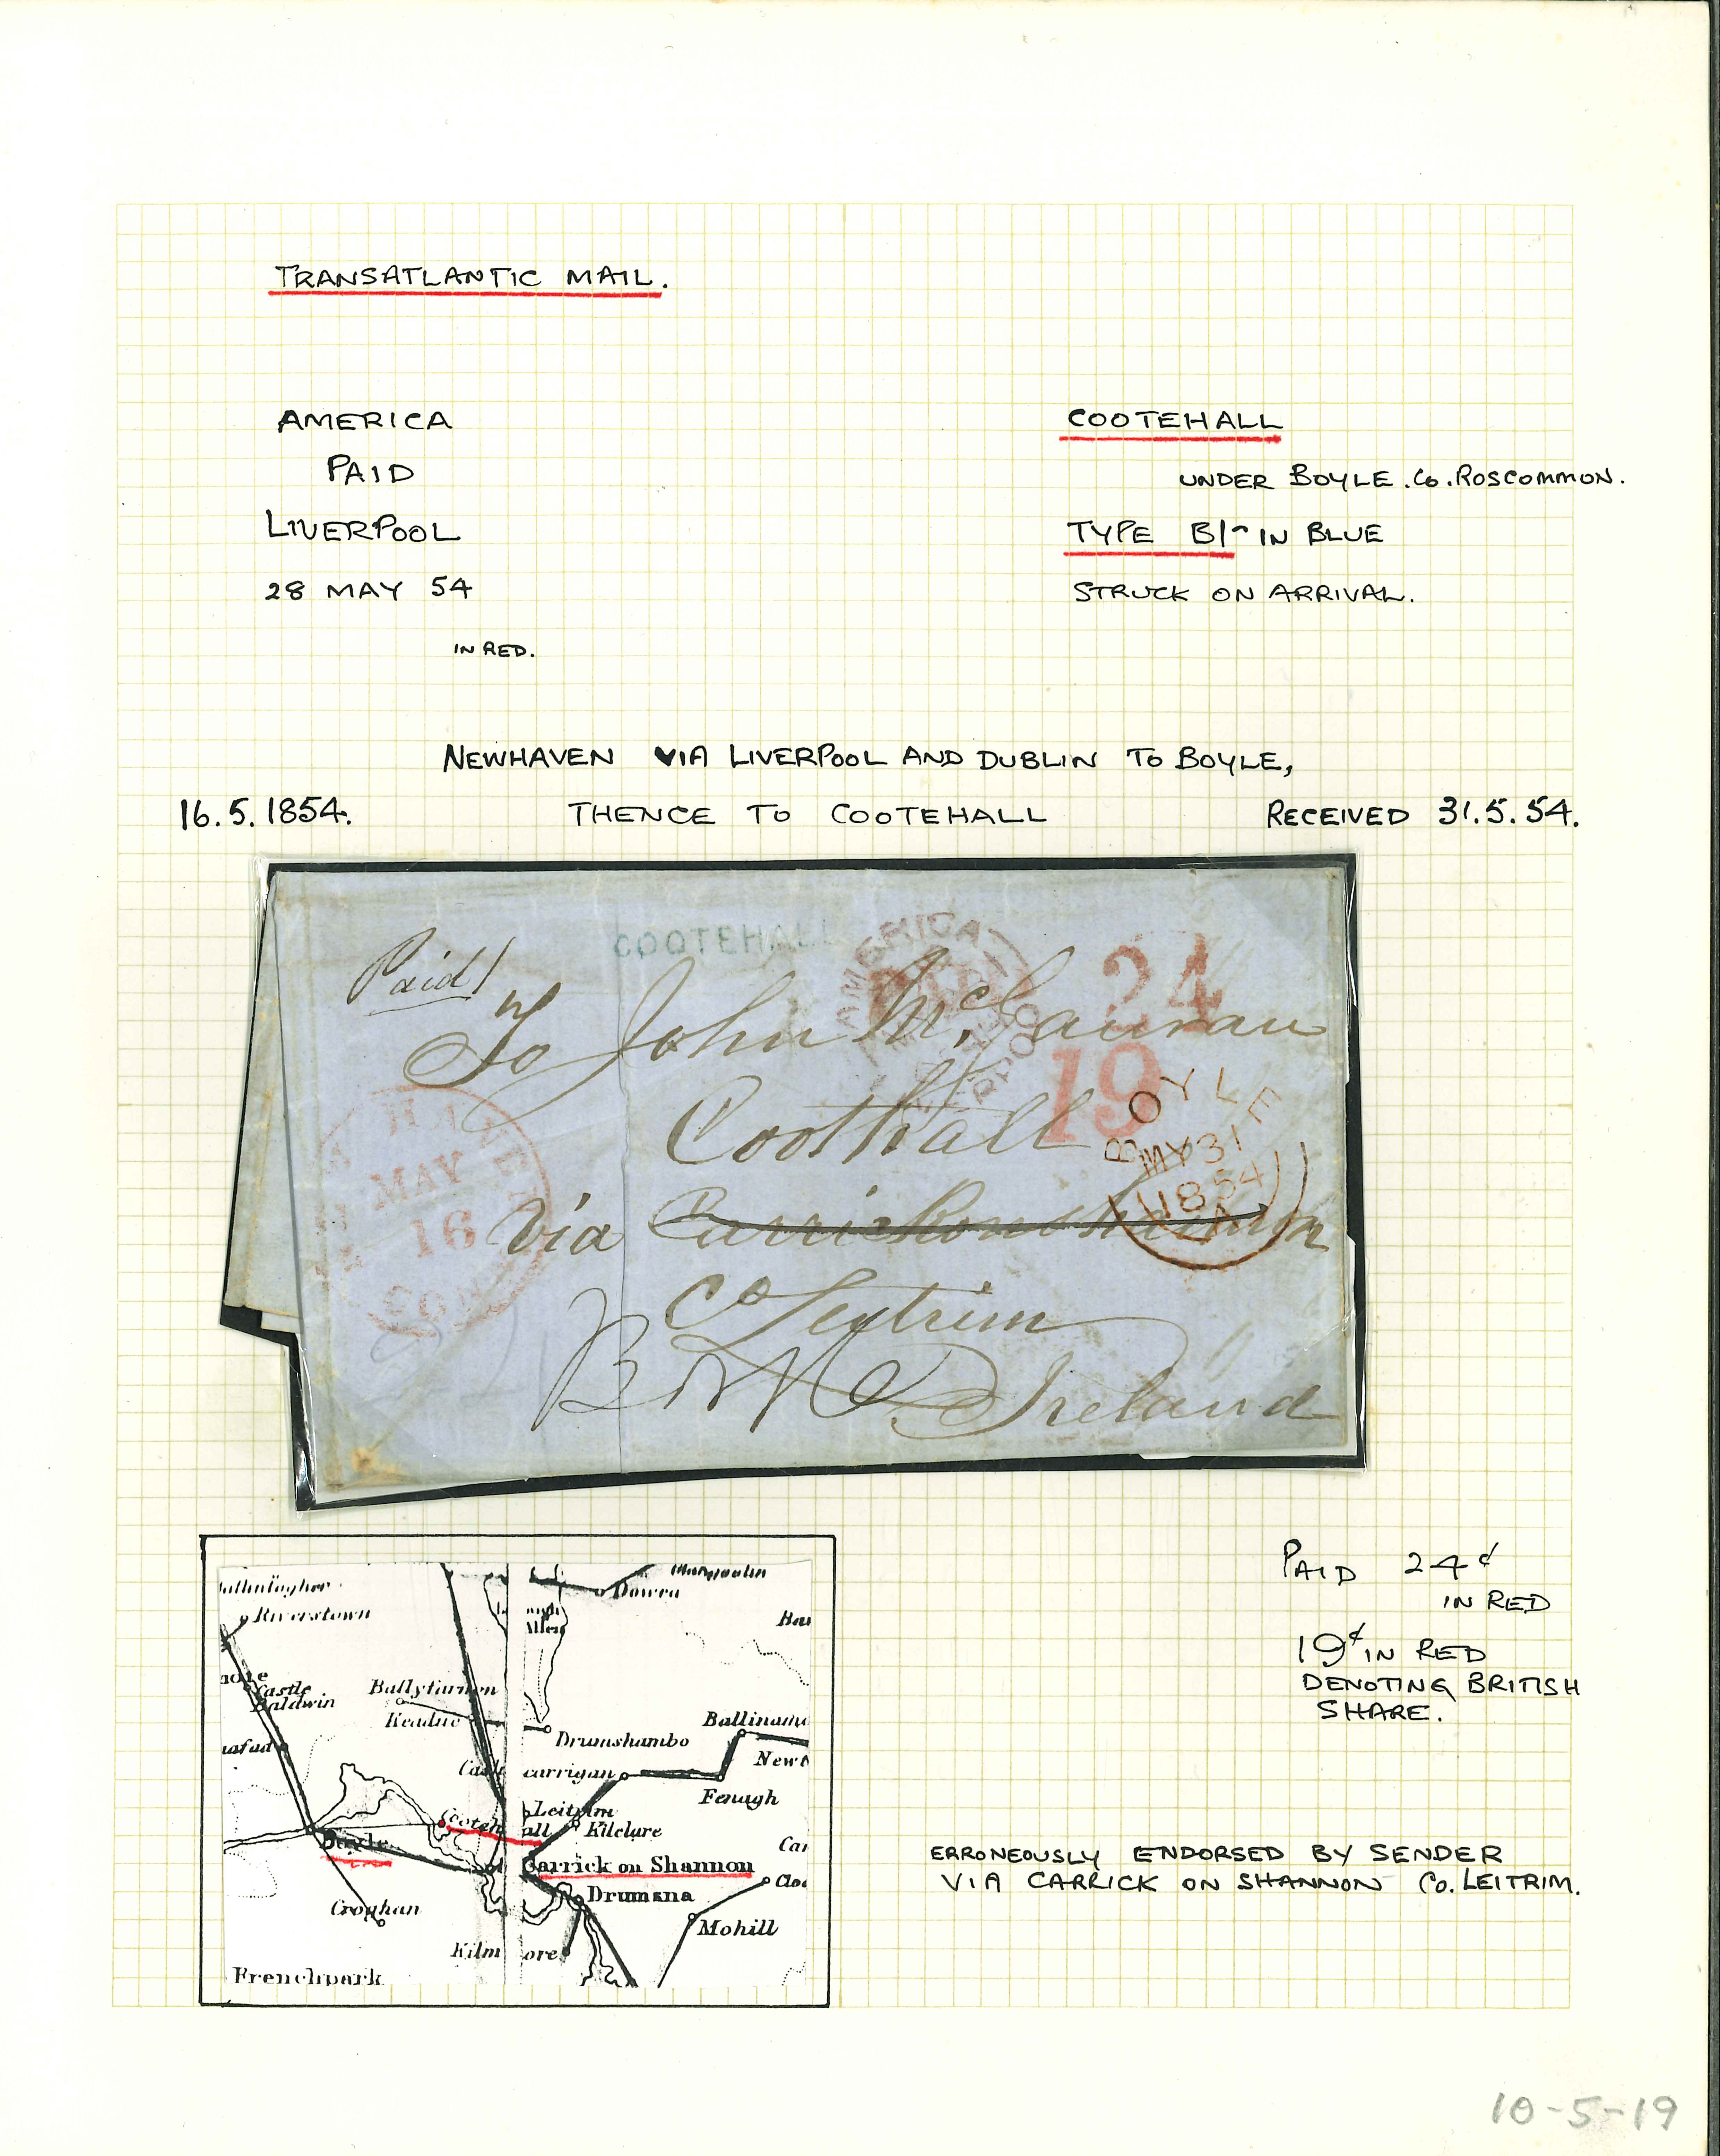 TRANSATLANTIC MAIL.
AMERICA
PAID
LIVERPOOL
28 MAY 54
IN RED.
COOTEHALL
UNDER BOYLE. Co. ROSCOMMON.
TYPE B1 - IN BLUE
STRUCK ON ARRIVAL.
NEWHAVEN VIA LIVERPOOL AND DUBLIN TO BOYLE,
16.5.1854. THENCE TO COOTEHALL RECEIVED 31.5.54.
COOTEHALL
AMERICA
LIVERPOOL
24
19
Paid/
To John McGauran
Coothall
via Carrickonshannon
Co Leytrim
Boyle
Ireland
HAVEN
MAY
16
CON
BOYLE
MY 31
1854
A
Riverstown
Dowra
Castle
Baldwin
Ballyfarnon
Keadue
Drumshambo
Ballinamo
Newt
Castle carrigan
Fenagh
Leitrim
Cooteh all
Kilclare
Boyle
Carrick on Shannon
Car
Clo
Drumsna
Croghan
Mohill
Kilm ore
Frenchpark
PAID 24¢
IN RED
19¢ IN RED
DENOTING BRITISH
SHARE.
ERRONEOUSLY ENDORSED BY SENDER
VIA CARRICK ON SHANNON Co. LEITRIM.
10-5-19